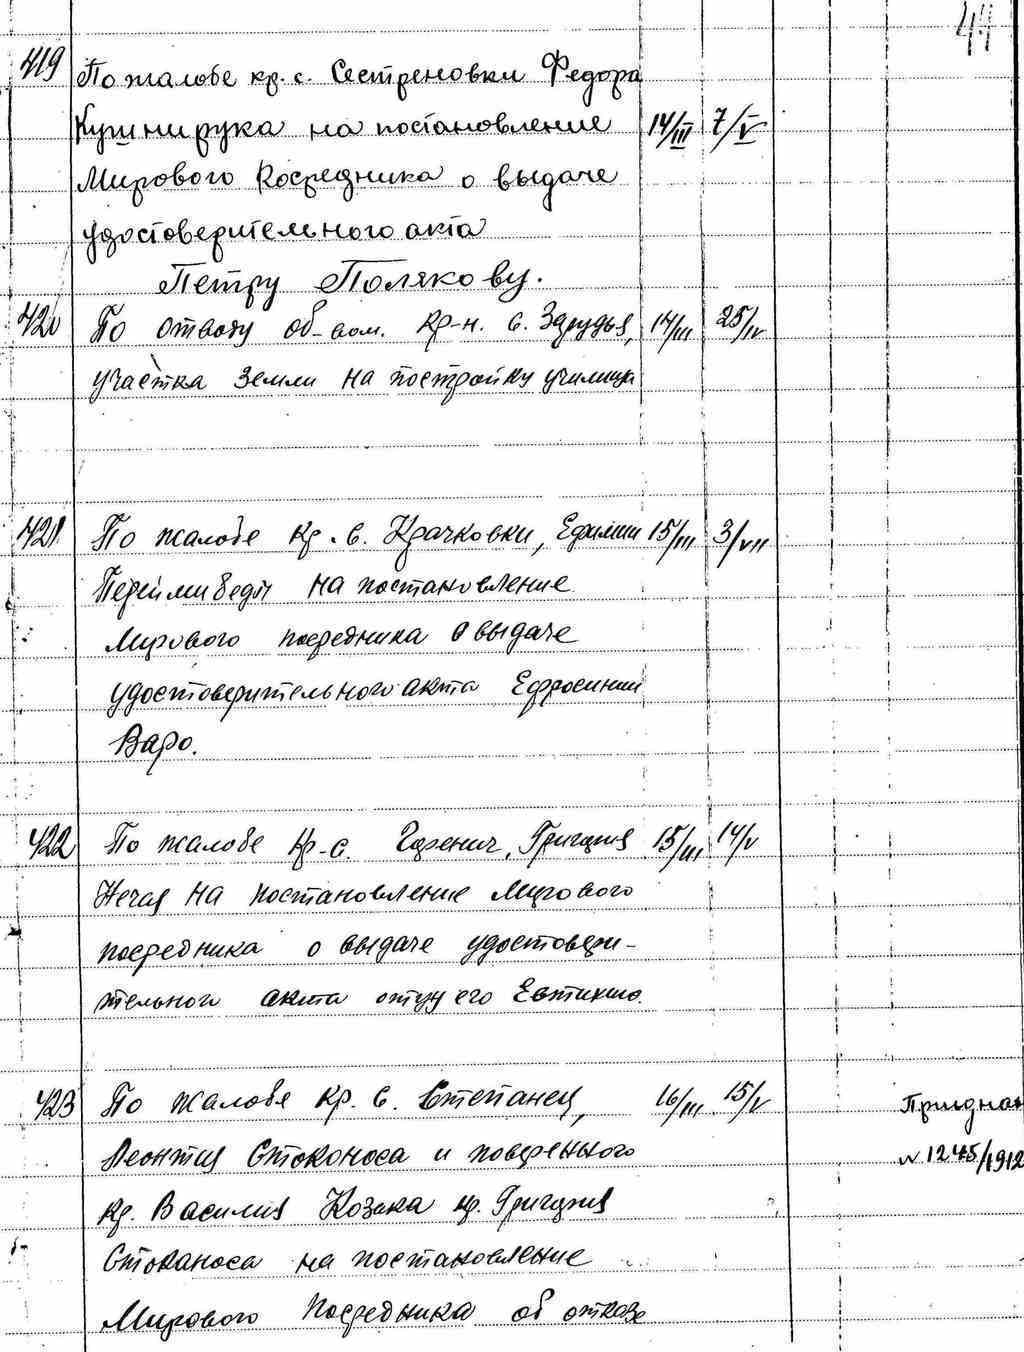 44
419 По жалобе кр. с. Сестреновки Федора
Кушнирука на постановление 14/III 7/V
Мирового Посредника о выдаче
удостоверительного акта
Петру Полякову.
420 По отводу об-вом. кр-н. с. Здрудья, 14/III 25/IV
участка земли на постройку училища
421 По жалобе кр. с. Крачковки, Ефимии 15/III 3/VII
на постановление
Мирового посредника о выдаче
удостоверительного акта Ефросинии
Варо.
422 По жалобе кр-с. Григория 15/III 14/V
Нечая на постановление Мирового
посредника о выдаче удостовери-
тельного акта отцу его Евтихию.
423 По жалобе кр. с. Степанец, 16/III 15/V
Леонтия Стоконоса и поверенного
кр. Василия Козака кр. Григория
Стоконоса на постановление
Мирового Посредника об отказе
№ 1245/1912